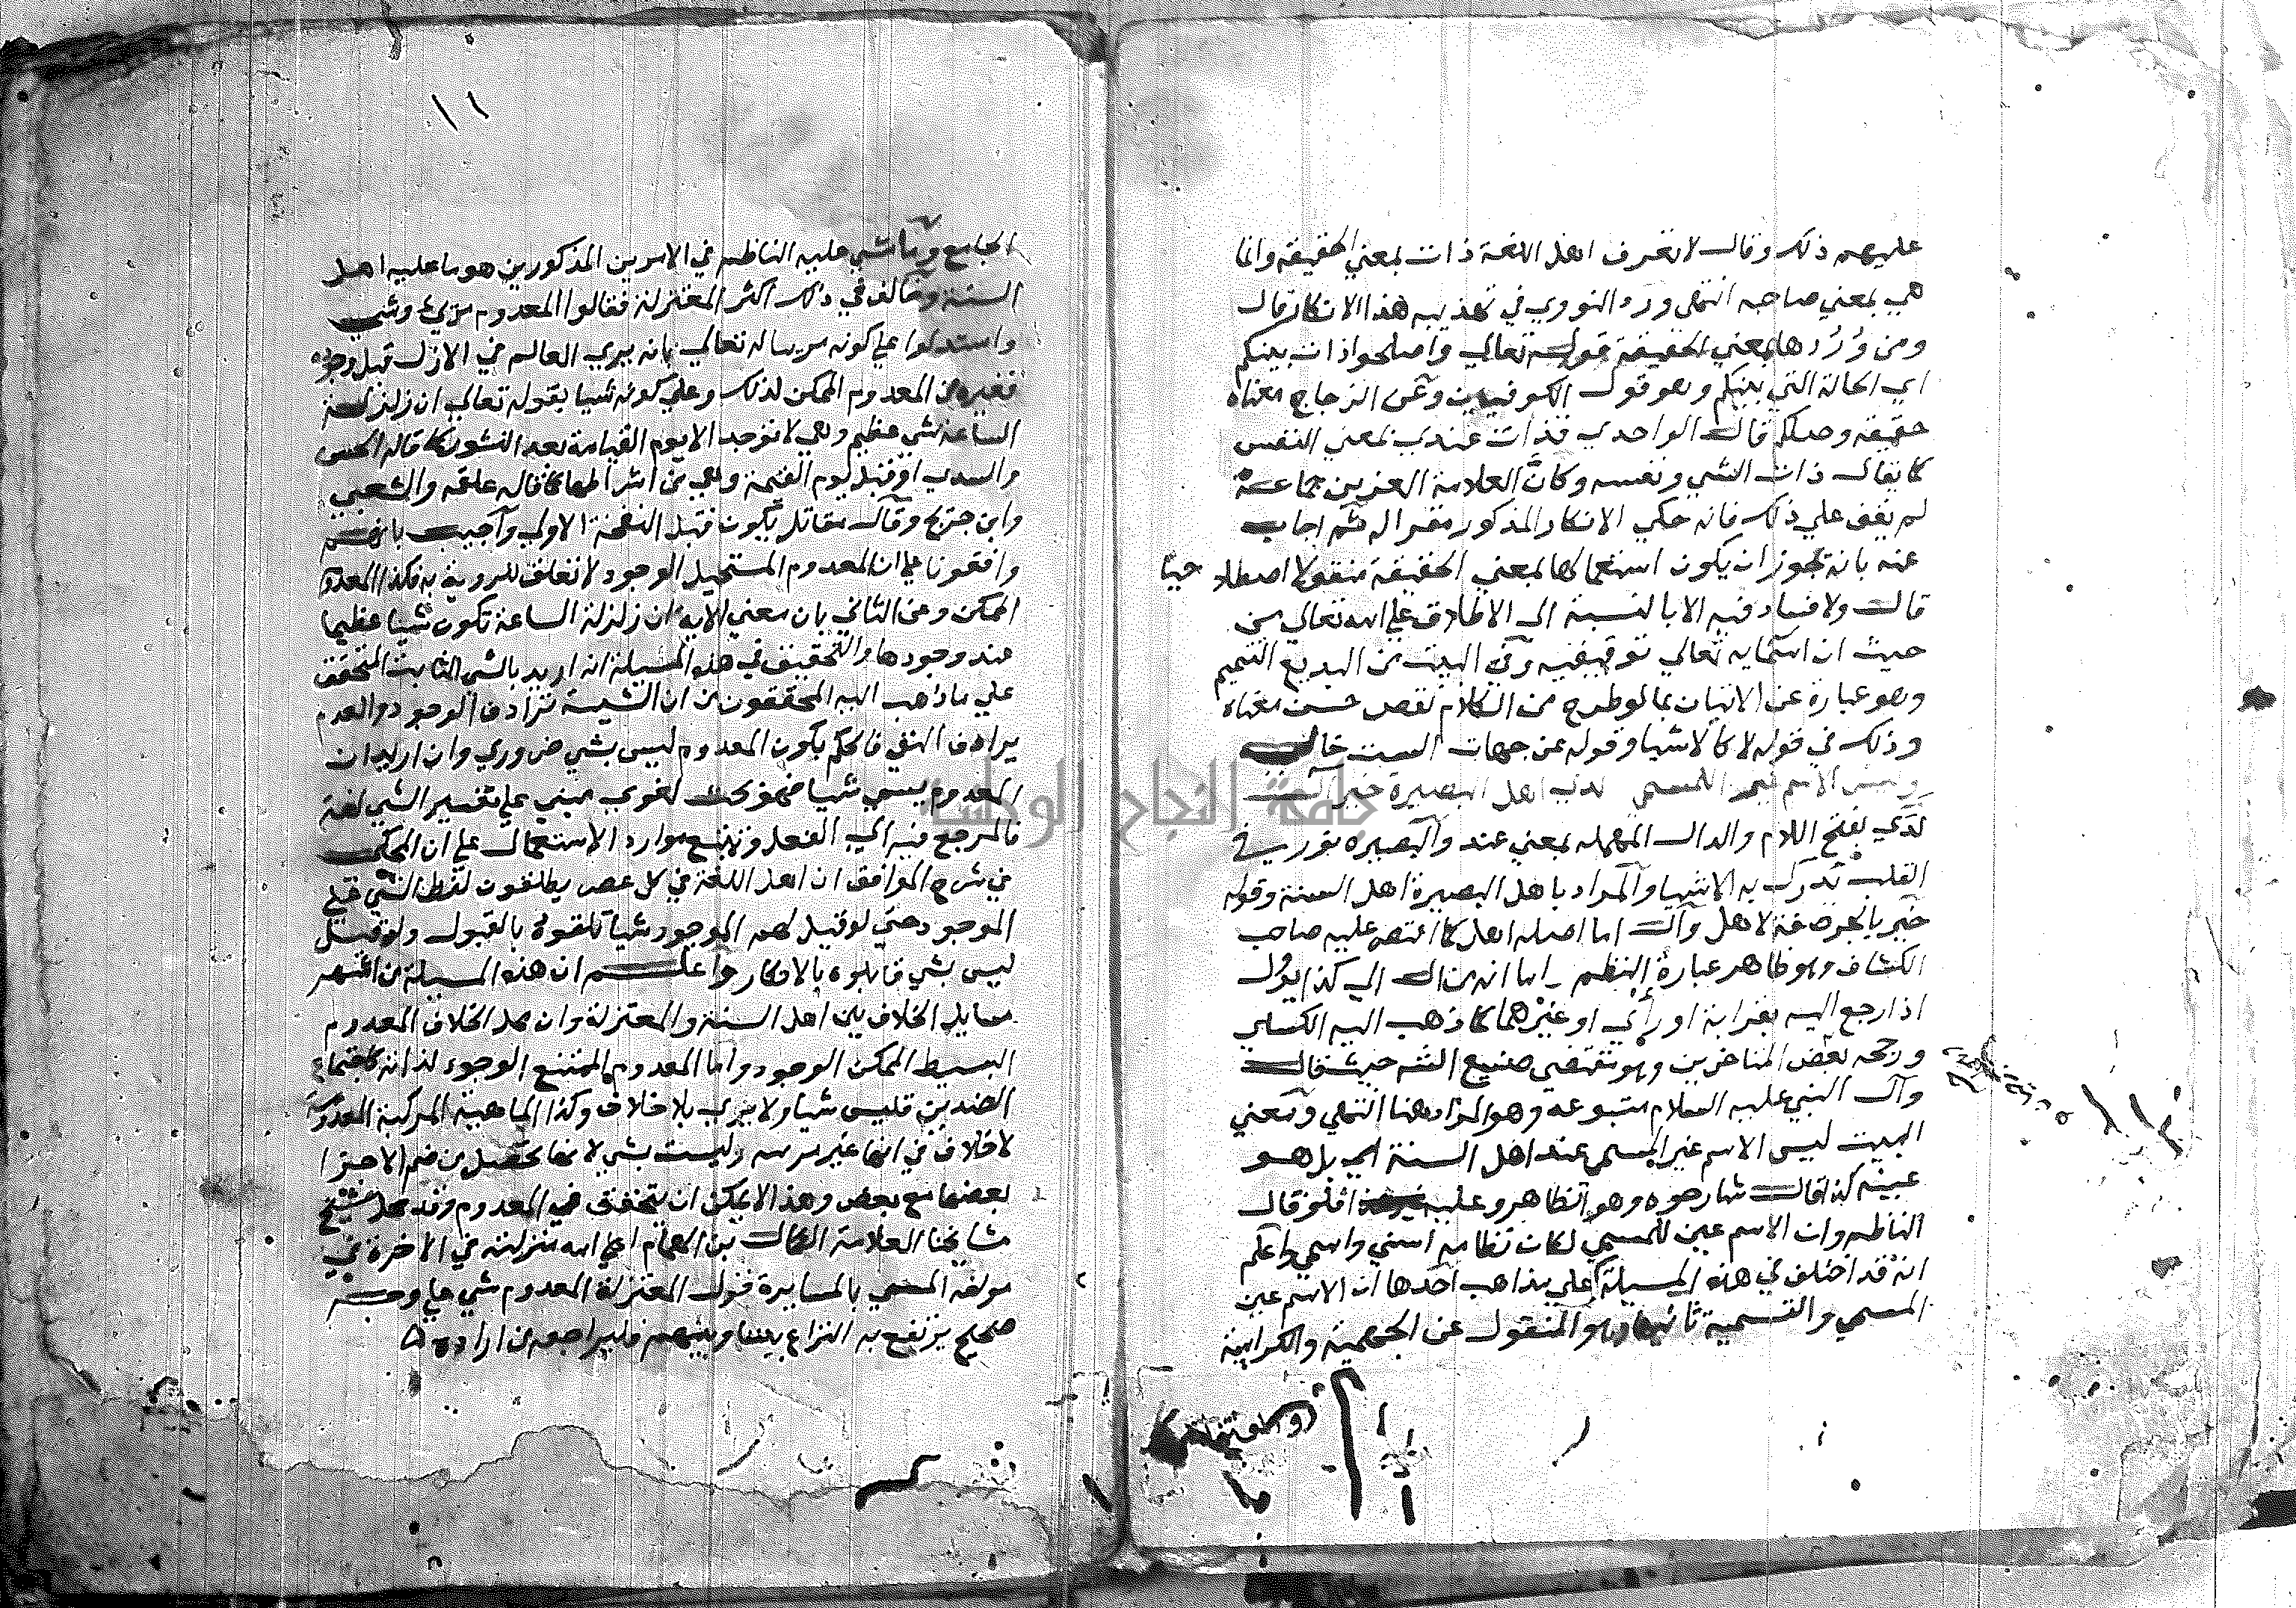 عليهم ذلك وقال لا تعرف اهل اللغة ذات بمعني الحقيقة وانما
هي بمعني صاحبه انتهى ورد النووي في تهذيبه هذا الانكار قال
ومن ورُدها بمعني الحقيقة قوله تعالي واصلحوا ذات بينكم
اي الحالة التي بينكم وهو قول الكوفيين وعن الزجاج معناه
حقيقة وصلكم قال الواحدي فذات عندي بمعني النفس
كما يقال ذات الشي ونفسه وكان العلامة العز بن جماعة
لم يقف علي ذلك فانه حكي الانكار المذكور مقرا له ثم اجاب
عنه بانه تجوز ان يكون استعمالها بمعني الحقيقة منقولا اصطلا حيا
قال ولا فساد فيه الا بالنسبة الى الاطلاق علي الله تعالي من
حيث ان اسمايه تعالي توقيفيه وفي البيت من البديع التتميم
وهو عبارة عن الاتيان بما لو طرح من الكلام نقص حسن معناه
وذلك في قوله لا كالاشيا وقوله عن جهات الست خالي
وليس الاسم غيرا للمسمي لدي اهل البصيرة خير آل
لدي بفتح اللام والدال المهملة بمعني عند والبصيره نور في
القلب تدرك به الاشيا والمراد باهل البصيرة اهل السنة وقوله
خير بالجر صفة لاهل وآل اما اصله اهل كما اقتصر عليه صاحب
الكشاف وهو ظاهر عبارة النظم واما انه من ال الي كذا يؤل
اذا رجع اليه بقرابة او رأي او غيرهما كما ذهب اليه الكساي
ورجحه بعض المتاخرين وهو تقتضي صنيع حيث قال
وآل النبي عليه السلام متبوعه وهو المراد هنا انتهي ومعني
البيت ليس الاسم غير المسمي عند اهل السنة اي بل هو
عينه كذا قال شارحوه وهو الظاهر وعليه فلو قال
الناظم وان الاسم عين للمسمي لكان نظامه اسني واسمي واعلم
انه قد اختلف في هذه المسيلة علي مذاهب احدها ان الاسم عين
المسمي والتسمية ثانيها وهو المنقول عن الجهمية والكرامية
والمعتزلة
١١
الجامع وما مشي عليه الناظم في الامرين المذكورين هو ما عليه اهل
السنة وخالف في ذلك اكثر المعتزلة فقالوا المعدوم مرئ وشي
واستدلوا علي كونه مريا له تعالي بانه يري العالم في الازل قبل وجوده
فغيره من المعدوم الممكن لذلك وعلي كونه شيا بقوله تعالي ان زلزلة
الساعة شي عظيم وهي لا توجد الا يوم القيامة بعد النشور كما قاله الحسن
والسدي او قبل يوم القيمة وهي من اشراطها كما قاله علقمه والشعبي
وابن جريج وقال مقاتل يكون قبل النفخة الاولي واجيب بانهم
وافقونا علي ان المعدوم المستحيل الوجود لا تعلق للروية به فكذا المعدوم
الممكن وعن الثاني بان معني الاية ان زلزلة الساعة تكون شيا عظيما
عند وجودها والتحقيق في هذه المسيلة انه ان اريد بالشي الثابت المتحقق
علي ما ذهب اليه المحققون من ان الشيية ترادف الوجود والعدم
يرادف النفي فالحكم بكون المعدوم ليس بشي ضروري وان اريد ان
المعدوم يسمي شيا فهو بحث لغوي مبني علي تفسير الشي لغة
فالمرجع فيه الي النقل وتتبع موارد الاستعمال علي ان المحكي
في شرح المواقف ان اهل اللغة في كل عصر يطلقون لفظ الشي علي
الموجود حتي لو قيل لهم الموجود شيا تلقوه بالقبول ولو قيل
ليس بشي قابلوه بالانكار واعلم ان هذه المسيلة من اشهر
مسايل الخلاف بين اهل السنة والمعتزلة وان محل الخلاف المعدوم
البسيط الممكن الوجود واما المعدوم الممتنع الوجود لذاته كاجتماع
الضدين فليس شيا ولا يري بلا خلاف وكذا الماهية المركبة المعدومة
لا خلاف في انها غير مريه وليست بشي لانها تحصل من ضم الاجزا
بعضها مع بعض وهذا لا يمكن ان يتحقق في المعدوم وقد شيخ
مشايخنا العلامة الكمال بن الهمام اعلي الله منزلته في الاخرة في
مولفه المسمي بالمسايرة قول المعتزلة المعدوم شي علي وجه
صحيح يرتفع به النزاع بيننا وبينهم فليراجعه من اراده
جامعة النجاح الوطنية